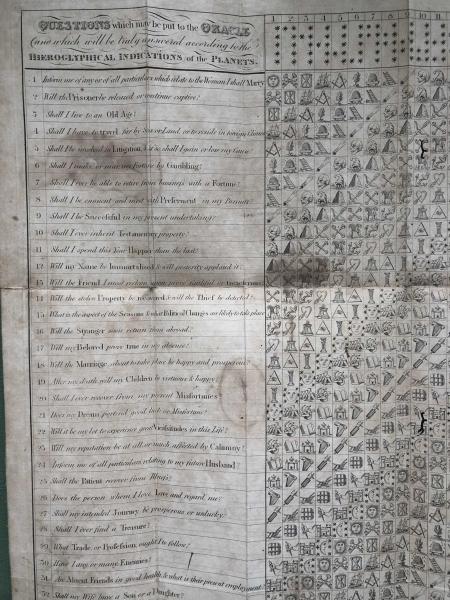 QUESTIONS which may be put to the ORACLE
(and which will be truly answered according to the
HIEROGLYPHICAL INDICATIONS of the PLANETS.
1 2 3 4 5 6 7 8 9 10 11
1 Inform me of any or of all particulars which relate to the Woman I shall Marry
2 Will the Prisoner be released or continue captive?
3 Shall I live to an Old Age?
4 Shall I have to travel far by Sea or Land, or to reside in foreign Climes
5 Shall I be involved in Litigation, & if so shall I gain or lose my Cause
6 Shall I make or mar my Fortune by Gambling?
7 Shall I ever be able to retire from business with a Fortune?
8 Shall I be eminent and meet with Preferment in my Pursuit
9 Shall I be Successful in my present undertaking?
10 Shall I ever inherit Testamentary property?
11 Shall I spend this Year Happier than the last?
12 Will my Name be Immortalized & will posterity applaud it
13 Will the Friend I most reckon upon prove faithful or treacherous
14 Will the stolen Property be recovered & will the Thief be detected
15 What is the aspect of the Seasons & what Political Changes are likely to take place
16 Will the Stranger soon return from abroad?
17 Will my Beloved prove true in my absence?
18 Will the Marriage about to take place be happy and prosperous?
19 After my death will my Children be virtuous & happy?
20 Shall I ever recover from my present Misfortunes?
21 Does my Dream portend good luck or Misfortune?
22 Will it be my lot to experience great Vicissitudes in this Life?
23 Will my reputation be at all or much affected by Calumny?
24 Inform me of all particulars relating to my future Husband?
25 Shall the Patient recover from Illness?
26 Does the person whom I love, Love and regard me?
27 Shall my intended Journey be prosperous or unlucky
28 Shall I ever find a Treasure?
29 What Trade, or Profession, ought I to follow?
30 Have I any, or many Enemies?
31 Are Absent Friends in good health & what is their present employment?
32 Shall my Wife have a Son or a Daughter?